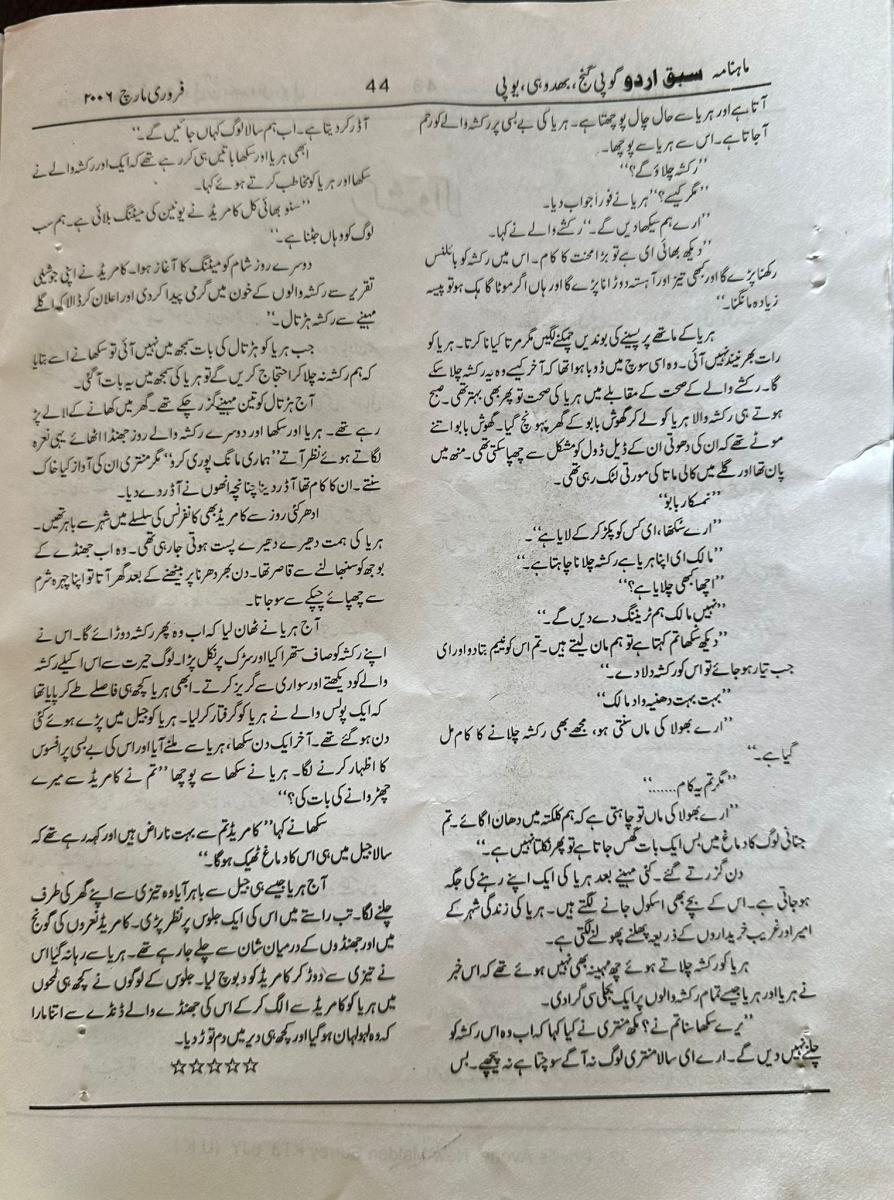 ماہنامہ سبق اردو گوپی گنج، بھدوہی، یوپی
44
فروری مارچ ۲۰۰۶
آتا ہے اور ہریا سے حال چال پوچھتا ہے۔ ہریا کی بے بسی پر رکشہ والے کو رحم
آجاتا ہے۔ اس سے ہریا سے پوچھا۔
’’رکشہ چلاؤ گے؟‘‘
’’مگر کیسے؟‘‘ ہریا نے فوراً جواب دیا۔
’’ارے ہم سیکھا دیں گے۔‘‘ رکشے والے نے کہا۔
’’دیکھ بھائی ای ہے تو بڑا محنت کا کام۔ اس میں رکشہ کو بائلنس
رکھنا پڑے گا اور کبھی تیز اور آہستہ دوڑانا پڑے گا اور ہاں اگر موٹا گاہک ہو تو پیسہ
زیادہ مانگنا۔‘‘
ہریا کے ماتھے پر پسینے کی بوندیں چمکنے لگیں مگر مرتا کیا نا کرتا۔ ہریا کو
رات بھر نیند نہیں آئی۔ وہ اسی سوچ میں ڈوبا ہوا تھا کہ آخر کیسے وہ یہ رکشہ چلا سکے
گا۔ رکشے والے کے صحت کے مقابلے میں ہریا کی صحت تو پھر بھی بہتر تھی۔ صبح
ہوتے ہی رکشہ والا ہریا کو لے کر گھوش بابو کے گھر پہونچ گیا۔ گھوش بابو اتنے
موٹے تھے کہ ان کی دھوتی ان کے ڈیل ڈول کو مشکل سے چھپا سکتی تھی۔ منھ میں
پان تھا اور گلے میں کالی ماتا کی مورتی لٹک رہی تھی۔
’’نمسکار بابو‘‘
’’ارے سکھا، ای کس کو پکڑ کر کے لایا ہے‘‘۔
’’مالک ای اپنا ہریا ہے رکشہ چلانا چاہتا ہے۔‘‘
’’اچھا کبھی چلایا ہے؟‘‘
’’نہیں مالک ہم ٹریننگ دے دیں گے۔‘‘
’’دیکھ سکھا تم کہتا ہے تو ہم مان لیتے ہیں۔ تم اس کو نیم بتادو اور ای
جب تیار ہو جائے تو اس کو رکشہ دلا دے۔‘‘
’’بہت بہت دھنیہ واد مالک‘‘
’’ارے بھولا کی ماں سنتی ہو، مجھے بھی رکشہ چلانے کا کام مل
گیا ہے۔‘‘
’’مگر تم یہ کام......‘‘
’’ارے بھولا کی ماں تو چاہتی ہے کہ ہم کلکتہ میں دھان اگائے۔ تم
جنانی لوگ کا دماغ میں بس ایک بات گھس جاتا ہے تو پھر نکلتا نہیں ہے۔‘‘
دن گزرتے گئے۔ کئی مہینے بعد ہریا کی ایک اپنے رہنے کی جگہ
ہو جاتی ہے۔ اس کے بچے بھی اسکول جانے لگتے ہیں۔ ہریا کی زندگی شہر کے
امیر اور غریب خریداروں کے ذریعہ پھلنے پھولنے لگتی ہے۔
ہریا کو رکشہ چلاتے ہوئے چھ مہینہ بھی نہیں ہوئے تھے کہ اس خبر
نے ہریا اور ہریا جیسے تمام رکشہ والوں پر ایک بجلی سی گرادی۔
’’یرے سکھا سنا تم نے؟ مکھ منتری نے کیا کہا کہ اب وہ اس رکشہ کو
چلنے نہیں دیں گے۔ ارے ای سالا منتری لوگ نہ آگے سوچتا ہے نہ پیچھے۔ بس
آڈر کر دیتا ہے۔ اب ہم سالا لوگ کہاں جائیں گے۔‘‘
ابھی ہریا اور سکھا باتیں ہی کر رہے تھے کہ ایک اور رکشہ والے نے
سکھا اور ہریا کو مخاطب کرتے ہوئے کہا۔
’’سنو بھائی کل کامریڈ نے یونین کی میٹنگ بلائی ہے۔ ہم سب
لوگ کو وہاں جٹنا ہے۔‘‘
دوسرے روز شام کو میٹنگ کا آغاز ہوا۔ کامریڈ نے اپنی جوشیلی
تقریر سے رکشہ والوں کے خون میں گرمی پیدا کردی اور اعلان کر ڈالا کہ اگلے
مہینے سے رکشہ ہڑتال۔‘‘
جب ہریا کو ہڑتال کی بات سمجھ میں نہیں آئی تو سکھا نے اسے بتایا
کہ ہم رکشہ نہ چلا کر احتجاج کریں گے تو ہریا کی سمجھ میں یہ بات آگئی۔
آج ہڑتال کو تین مہینے گزر چکے تھے۔ گھر میں کھانے کے لالے پڑ
رہے تھے۔ ہریا اور سکھا اور دوسرے رکشہ والے روز جھنڈا اٹھائے یہی نعرہ
لگاتے ہوئے نظر آتے ’’ہماری مانگ پوری کرو‘‘ مگر منتری ان کی آواز کیا خاک
سنتے۔ ان کا کام تھا آڈر دینا چنانچہ انھوں نے آڈر دے دیا۔
ادھر کئی روز سے کامریڈ بھی کانفرنس کی سلسلے میں شہر سے باہر تھیں۔
ہریا کی ہمت دھیرے دھیرے پست ہوتی جارہی تھی۔ وہ اب جھنڈے کے
بوجھ کو سنبھالنے سے قاصر تھا۔ دن بھر دھرنا پر بیٹھنے کے بعد گھر آتا تو اپنا چہرہ شرم
سے چھپائے چپکے سے سو جاتا۔
آج ہریا نے ٹھان لیا کہ اب وہ پھر رکشہ دوڑائے گا۔ اس نے
اپنے رکشہ کو صاف ستھرا کیا اور سڑک پر نکل پڑا۔ لوگ حیرت سے اس اکیلے رکشہ
والے کو دیکھتے اور سواری سے گریز کرتے۔ ابھی ہریا کچھ ہی فاصلے طے کر پایا تھا
کہ ایک پولس والے نے ہریا کو گرفتار کر لیا۔ ہریا کو جیل میں پڑے ہوئے کئی
دن ہو گئے تھے۔ آخر ایک دن سکھا، ہریا سے ملنے آیا اور اس کی بے بسی پر افسوس
کا اظہار کرنے لگا۔ ہریا نے سکھا سے پوچھا ’’تم نے کامریڈ سے میرے
چھڑوانے کی بات کی؟‘‘
سکھا نے کہا ’’کامریڈ تم سے بہت ناراض ہیں اور کہہ رہے تھے کہ
سالا جیل میں ہی اس کا دماغ ٹھیک ہوگا۔‘‘
آج ہریا جیسے ہی جیل سے باہر آیا وہ تیزی سے اپنے گھر کی طرف
چلنے لگا۔ تب راستے میں اس کی ایک جلوس پر نظر پڑی۔ کامریڈ نعروں کی گونج
میں اور جھنڈوں کے درمیان شان سے چلے جا رہے تھے۔ ہریا سے رہا نہ گیا اس
نے تیزی سے دوڑ کر کامریڈ کو دبوچ لیا۔ جلوس کے لوگوں نے کچھ ہی لمحوں
میں ہریا کو کامریڈ سے الگ کر کے اس کی جھنڈے والے ڈنڈے سے اتنا مارا
کہ وہ لہولہان ہو گیا اور کچھ ہی دیر میں دم توڑ دیا۔
☆☆☆☆☆